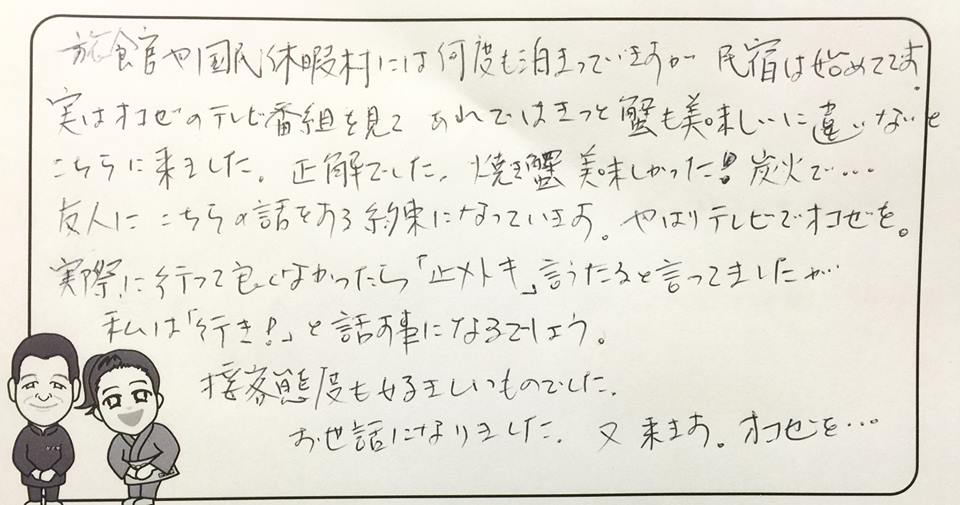 旅館や国民休暇村には何度も泊まっていますが 民宿は始めてです。
実はオコゼのテレビ番組を見て あれではきっと蟹も美味しいに違いないと
こちらに来ました。正解でした。焼き蟹 美味しかった!炭火で…
友人にこちらの話をする約束になっています。やはりテレビでオコゼを。
実際に行って良くなかったら「止メトキ」言うたると言ってましたが…
私は「行き!」と話す事になるでしょう。
接客態度も好ましいものでした。
お世話になりました。又来ます。オコゼを…